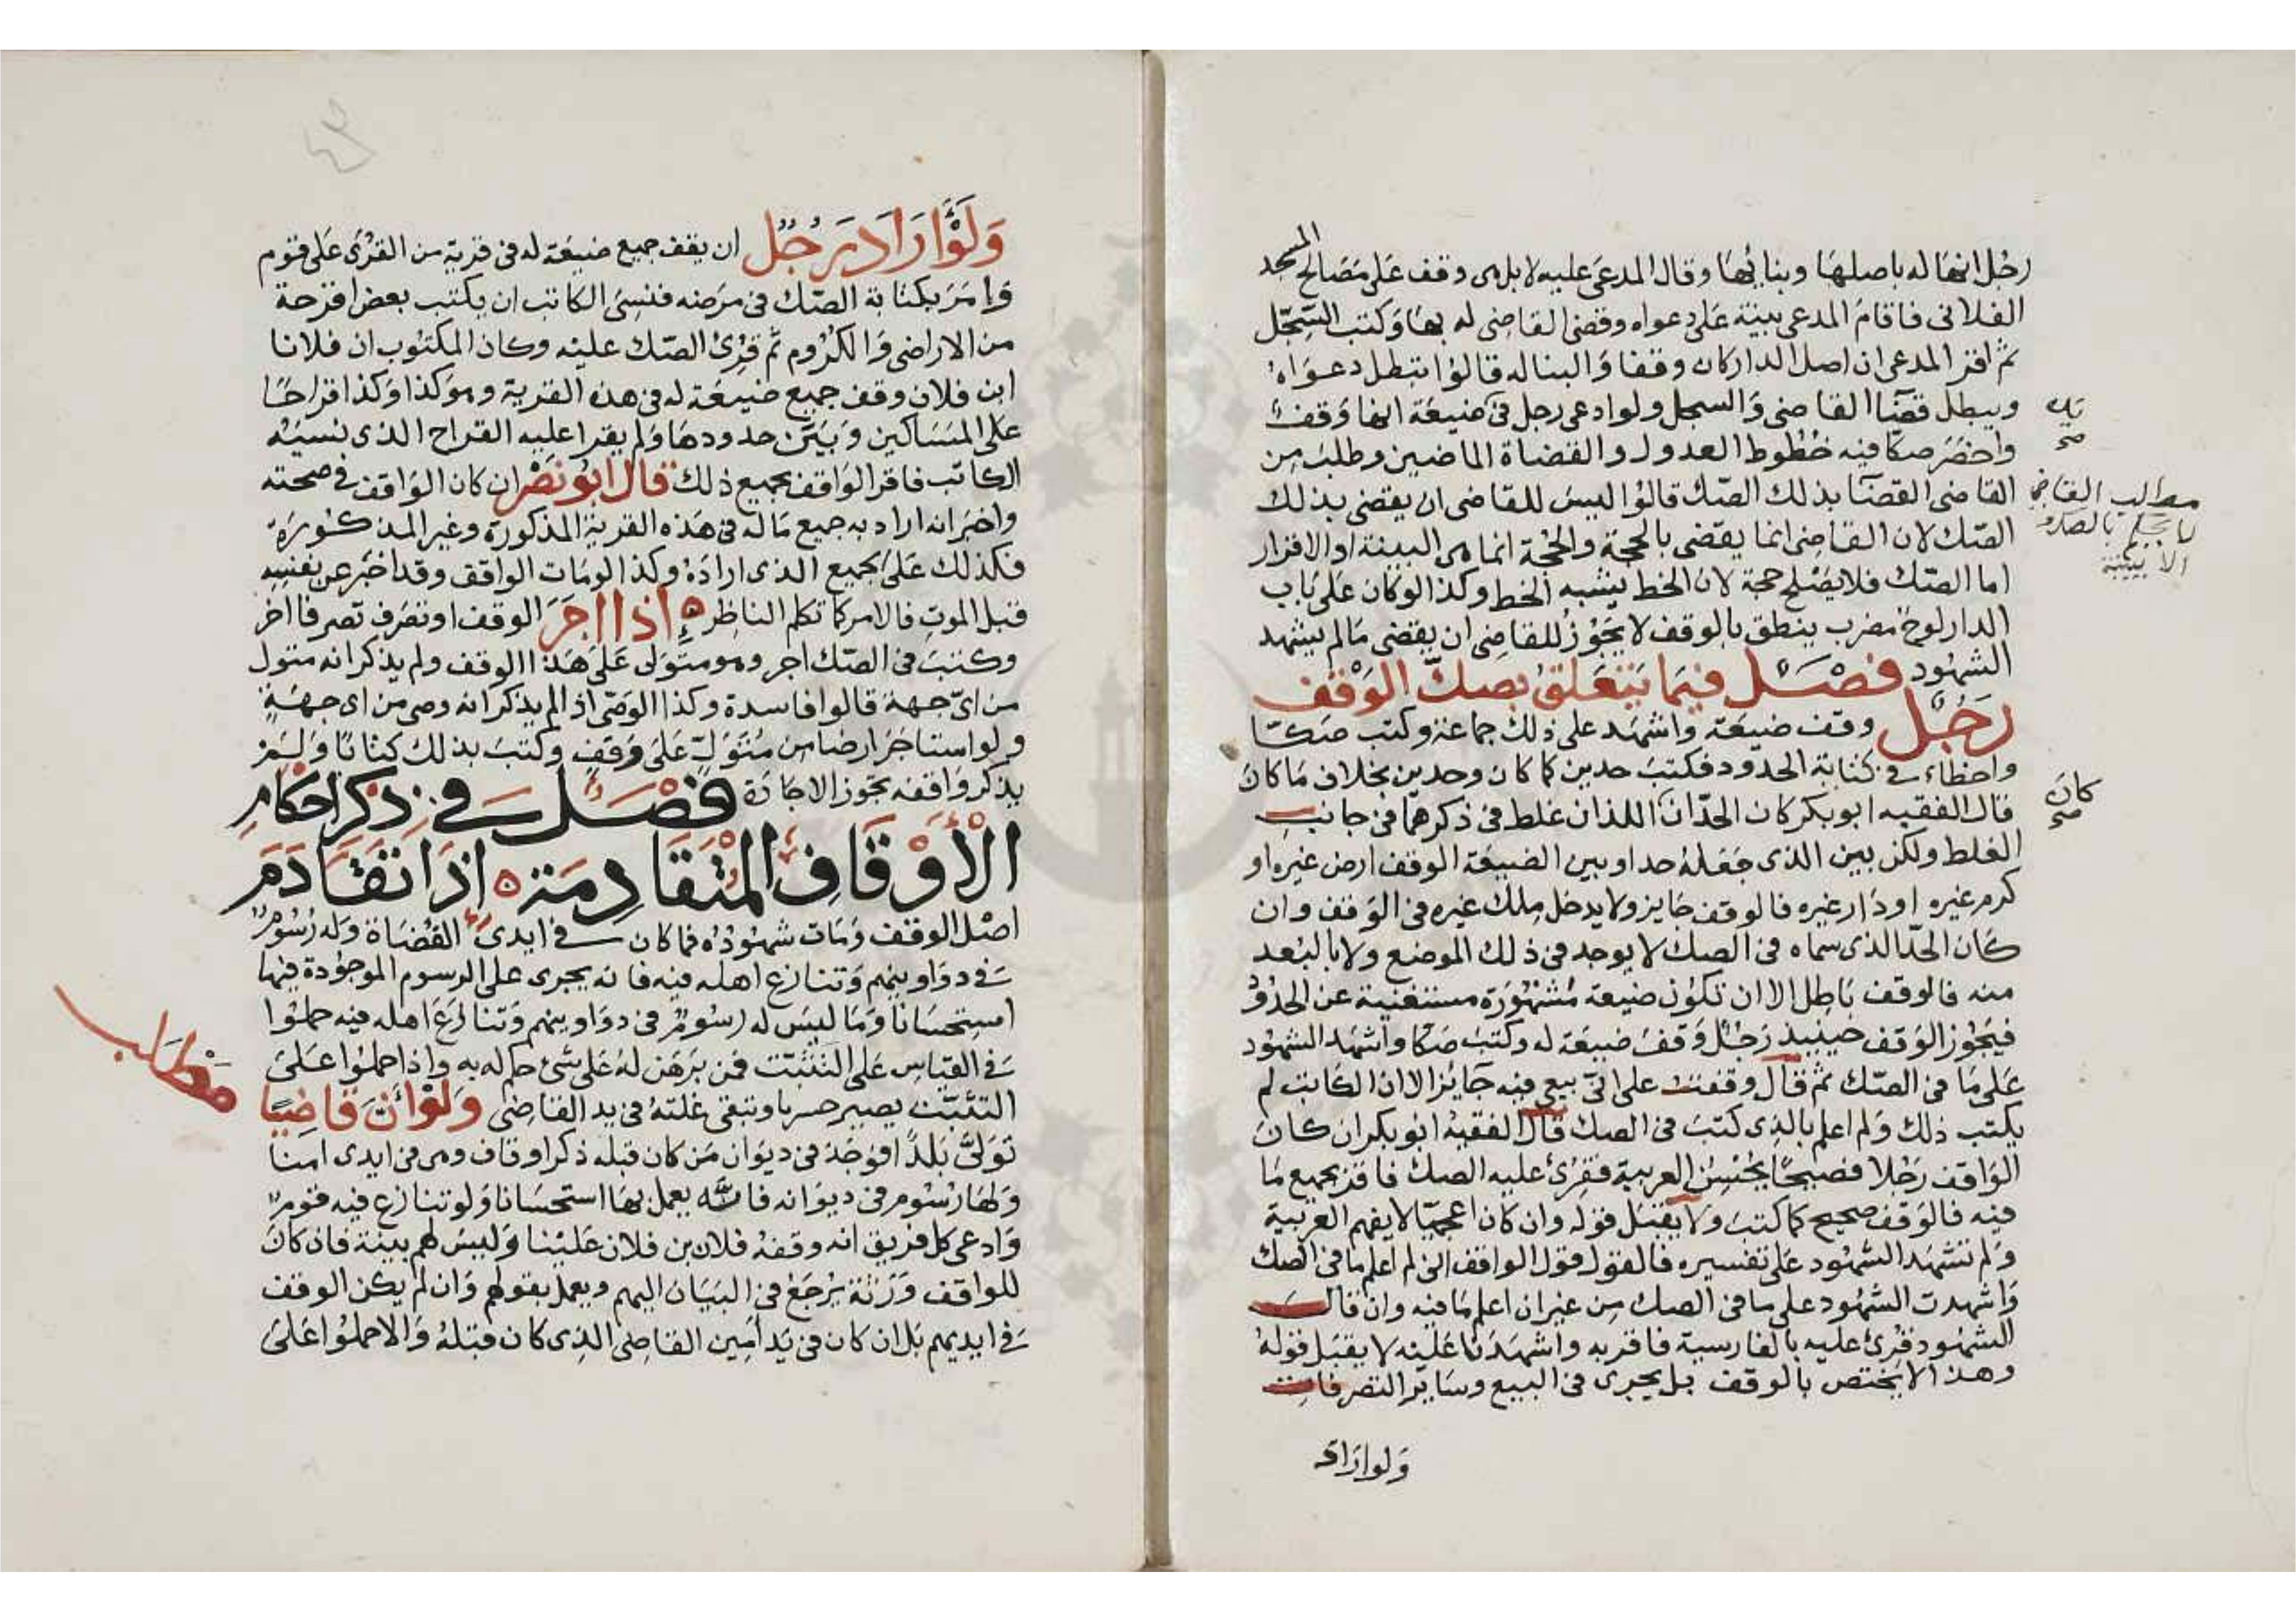 رجل انها له باصلها وبنائها وقال المدعى عليه لا بل هى وقف على مصالح المسجد
الفلانى فاقام المدعى بينة على دعواه وقضى القاضى له بها وكتب السجل
ثم اقر المدعى ان اصل الدار كان وقفا والبنا له قالوا تبطل دعواه
ويبطل قضا القاضى والسجل ولو ادعى رجل فى ضيعة انها وقف
واحضر صكا فيه خطوط العدول والقضاة الماضين وطلب من
القاضى القضا بذلك الصك قالوا ليس للقاضى ان يقضى بذلك
الصك لان القاضى انما يقضى بالحجة والحجة انما هى البينة او الاقرار
اما الصك فلا يصلح حجة لان الخط يشبه الخط وكذا لو كان على باب
الدار لوح مضرب ينطق بالوقف لا يجوز للقاضى ان يقضى ما لم يشهد
الشهود فصل فيما يتعلق بصك الوقف
رجل وقف ضيعة واشهد على ذلك جماعة وكتب صكا
واخطاء فى كتابة الحدود فكتب حدين كما كان وحدين بخلاف ما كان
قال الفقيه ابو بكر كان الحدان اللذان غلط فى ذكرهما فى جانب
الغلط ولكن بين الذى جعله حدا وبين الضيعة الوقف ارض غيره او
كرم غيره او دار غيره فالوقف جايز ولا يدخل ملك غيره فى الوقف وان
كان الحد الذى سماه فى الصك لا يوجد فى ذلك الموضع ولا بالبعد
منه فالوقف باطل الا ان تكون ضيعة مشهورة مستغنية عن الحدود
فيجوز الوقف حينيذ رجل وقف ضيعة له وكتب صكا واشهد الشهود
على ما فى الصك ثم قال وقفت على انى بيعى فيه جايز الا ان الكاتب لم
يكتب ذلك ولم اعلم بالذى كتب فى الصك قال الفقيه ابو بكر ان كان
الواقف رجلا فصيحا يحسن العربية فقرئ عليه الصك فاقر بجميع ما
فيه فالوقف صحيح كما كتب ولا يقبل قوله وان كان اعجميا لا يفهم العربية
ولم تشهد الشهود على تفسيره فالقول قول الواقف انى لم اعلم ما فى الصك
واشهدت الشهود على ما فى الصك من غير ان اعلم ما فيه وان قال
الشهود قرئ عليه بالفارسية فاقر به واشهدنا عليه لا يقبل قوله
وهذا لا يختص بالوقف بل يجرى فى البيع وساير التصرفات
ولو اراد
كان
صح
مطلب القاضى
لا يحكم بالصك
الا ببينة
ولو اراد رجل ان يقف جميع ضيعة له فى قرية من القرى على قوم
وامر بكتابة الصك فى مرضه فنسى الكاتب ان يكتب بعض اقرحة
من الاراضى والكروم ثم قرئ الصك عليه وكان المكتوب ان فلانا
ابن فلان وقف جميع ضيعة له فى هذه القرية وهو كذا وكذا قراحا
على المساكين وبين حدودها ولم يقرا عليه القراح الذى نسيه
الكاتب فاقر الواقف بجميع ذلك قال ابو نصر ان كان الواقف فى صحته
واخبر انه اراد به جميع ماله فى هذه القرية المذكورة وغير المذكورة
فكذلك على الجميع الذى اراده وكذا لو مات الواقف وقد اخبر عن نفسه
قبل الموت فالامر كما تكلم الناظر اذا اجر الوقف او تصرف تصرفا اخر
وكتب فى الصك اجر وهو متولى على هذا الوقف ولم يذكر انه متول
من اى جهة قالوا فاسدة وكذا الوصى اذا لم يذكر انه وصى من اى جهة
ولو استاجر ارضا من متول على وقف وكتب بذلك كتابا ولم
يذكر واقفه تجوز الاجارة فصل فى ذكر احكام
الاوقاف المتقادمة اذا تقادم
اصل الوقف ومات شهوده فما كان فى ايدى القضاة وله رسوم
فى دواوينهم وتنازع اهله فيه فانه يجرى على الرسوم الموجودة فيها
استحسانا وما ليس له رسوم فى دواوينهم وتنازع اهله فيه حملوا
فى القياس على التثبت فمن برهن له على شئ حكم له به واذا حملوا على
التثبت يصير وتبقى غلته فى يد القاضى ولو ان قاضيا
تولى بلدا فوجد فى ديوان من كان قبله ذكر اوقاف وهى فى ايدى امنا
ولها رسوم فى ديوانه فانه يعمل بها استحسانا ولو تنازع فيه قوم
وادعى كل فريق انه وقفه فلان بن فلان علينا وليس لهم بينة فان كان
للواقف ورثة يرجع فى البيان اليهم ويعمل بقولهم وان لم يكن الوقف
فى ايديهم بل ان كان فى يد امين القاضى الذى كان قبله والا حملوا على
مطلب